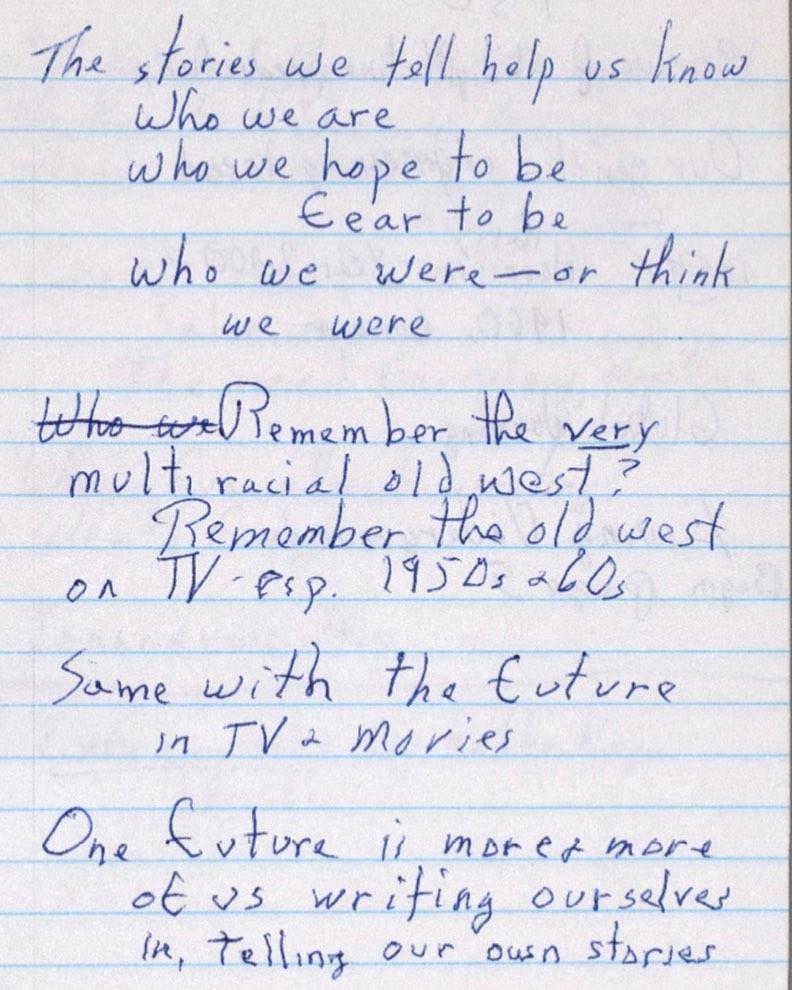 The stories we tell help us know
Who we are
who we hope to be
fear to be
who we were—or think
we were
~~Who we~~ Remember the very
multiracial old west?
Remember the old west
on TV - esp. 1950s & 60s
Same with the future
in TV & Movies
One future is more & more
of us writing ourselves
in, telling our own stories